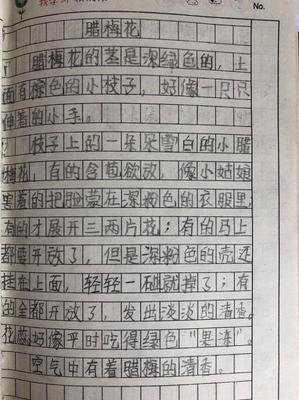 No.
腊梅花
腊梅花的茎是深绿色的，上
面有棕色的小枝子，好像一只只
伸着的小手。
枝子上的一朵朵雪白的小腊
梅花，有的含苞欲放，像小姑娘
害羞的把脸蒙在深粉色的衣服里；
有的才展开三两片花；有的马上
都要开放了，但是深粉色的壳还
挂在上面，轻轻一碰就掉了；有
的全都开放了，发出淡淡的清香。
花蕊好像平时吃得绿色“果冻”。
空气中有着腊梅的清香。